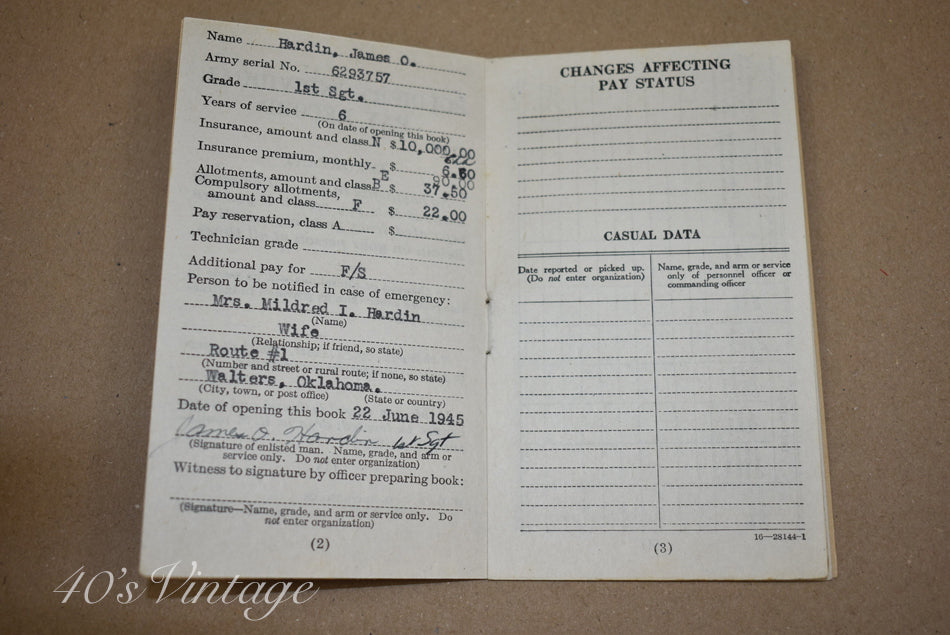 Name Hardin, James O.
Army serial No. 6293757
Grade 1st Sgt.
Years of service 6
(On date of opening this book)
Insurance, amount and class N $10,000.00
Insurance premium, monthly $ 6.60
Allotments, amount and class E 90.00
B $ 37.50
Compulsory allotments,
amount and class F $ 22.00
Pay reservation, class A $
Technician grade
Additional pay for F/S
Person to be notified in case of emergency:
Mrs. Mildred I. Hardin
(Name)
Wife
(Relationship; if friend, so state)
Route #1
(Number and street or rural route; if none, so state)
Walters, Oklahoma.
(City, town, or post office) (State or country)
Date of opening this book 22 June 1945
James O. Hardin 1st Sgt
(Signature of enlisted man. Name, grade, and arm or
service only. Do not enter organization)
Witness to signature by officer preparing book:
(Signature—Name, grade, and arm or service only. Do
not enter organization)
(2)
CHANGES AFFECTING
PAY STATUS
CASUAL DATA
Date reported or picked up.
(Do not enter organization)
Name, grade, and arm or service
only of personnel officer or
commanding officer
16—28144-1
(3)
40's Vintage